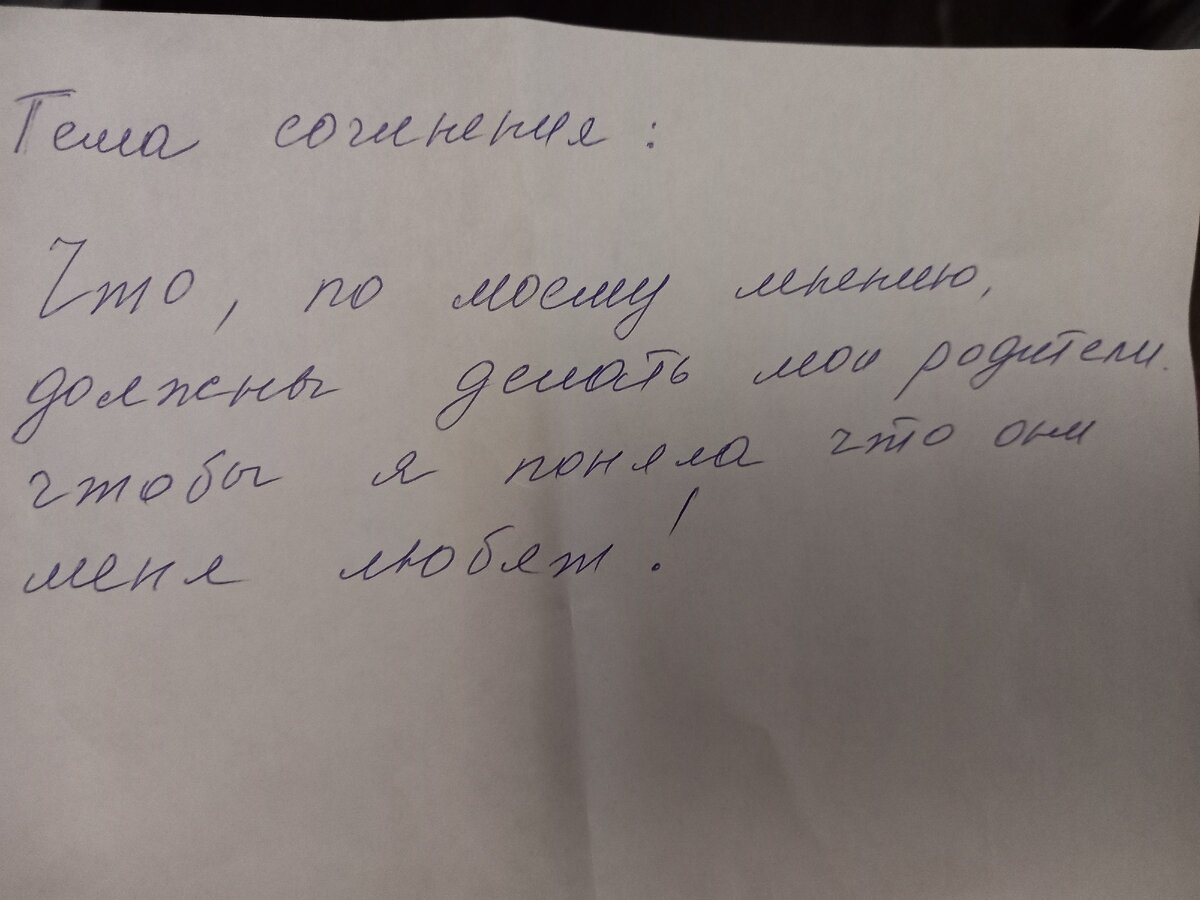 Тема сочинения:
Что, по моему мнению,
должны делать мои родители.
чтобы я поняла что они
меня любят!